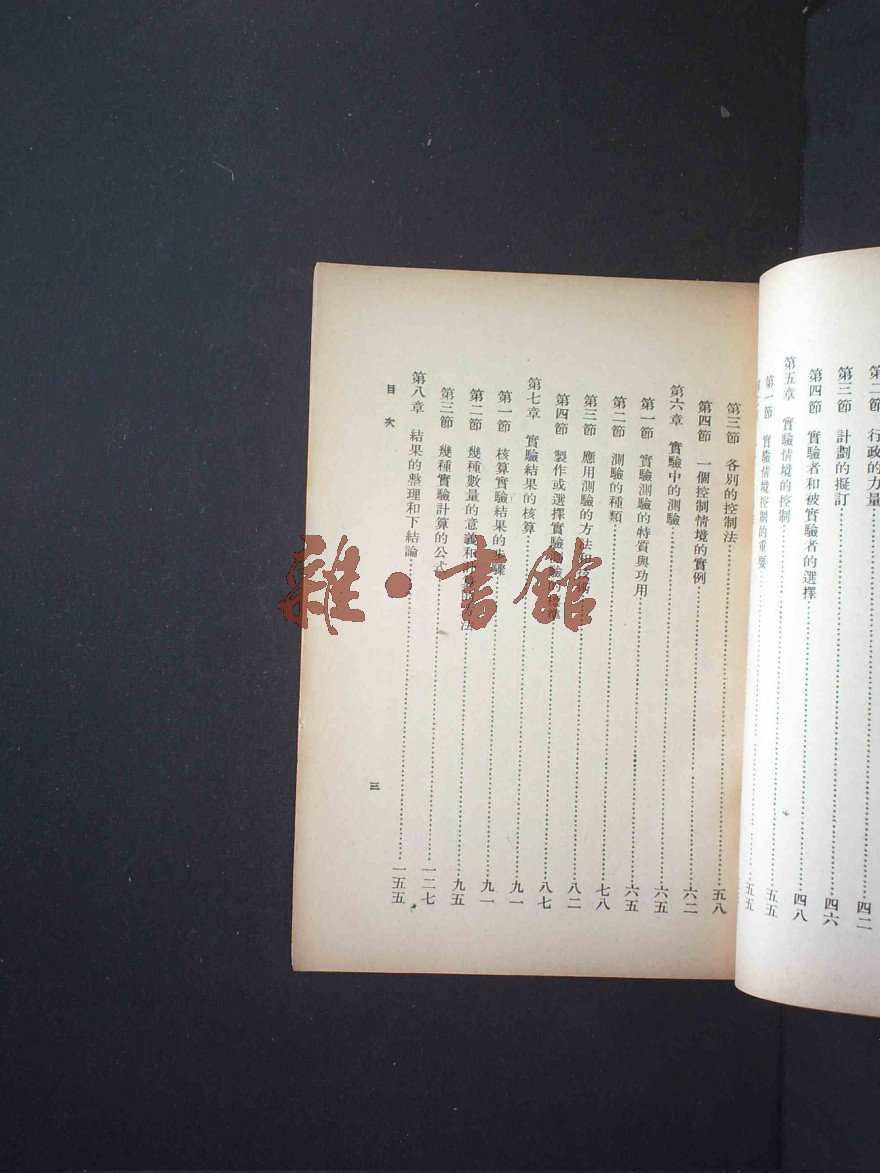 第二節 行政的力量……四二
第三節 計劃的擬訂……四六
第四節 實驗者和被實驗者的選擇……四八
第五章 實驗情境的控制……五五
第一節 實驗情境控制的重要……五五
第三節 各別的控制法……五八
第四節 一個控制情境的實例……六二
第六章 實驗中的測驗……六五
第一節 實驗測驗的特質與功用……六五
第二節 測驗的種類……七八
第三節 應用測驗的方法和……八二
第四節 製作或選擇實驗測驗的……八七
第七章 實驗結果的核算……九一
第一節 核算實驗結果的步驟……九一
第二節 幾種數量的意義和……法……九五
第三節 幾種實驗計算的公式……一二七
第八章 結果的整理和下結論……一五五
目次
三
雜·書館